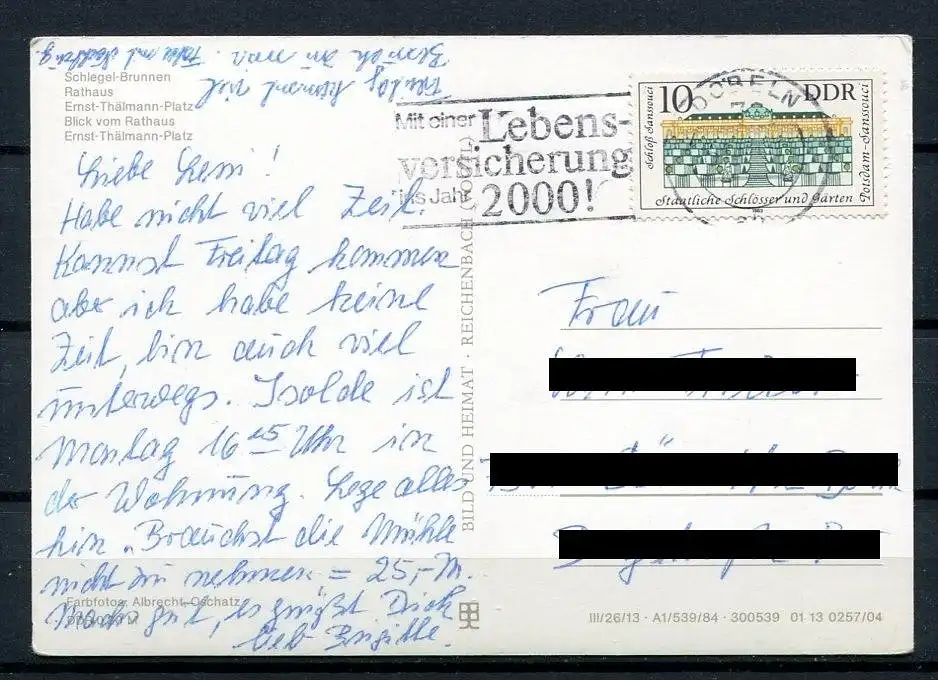 Schlegel-Brunnen
Rathaus
Ernst-Thälmann-Platz
Blick vom Rathaus
Ernst-Thälmann-Platz
Liebe Leni!
Habe nicht viel Zeit.
Kannst Freitag kommen
aber ich habe keine
Zeit, bin auch viel
unterwegs. Isolde ist
Montag 16 15 Uhr in
der Wohnung. Lege alles
hin. Brauchst die Mühle
nicht zu nehmen = 25,-M.
Machs gut, es grüßt Dich
lieb Brigitte.
Farbfotos: Albrecht, Oschatz
BILD UND HEIMAT · REICHENBACH
Mit einer Lebens-
versicherung
ins Jahr 2000!
DÖBELN
10 DDR
Schloß Sanssouci
Potsdam-Sanssouci
Staatliche Schlösser und Gärten
1983
Frau
III/26/13 · A1/539/84 · 300539 01 13 0257/04